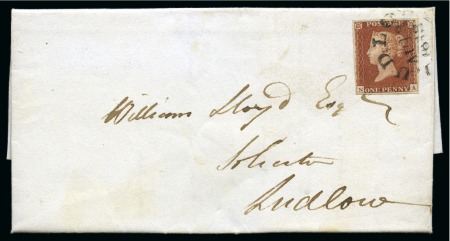 POSTAGE
S A
ONE PENNY
William Lloyd Esqr
Solicitor
Ludlow